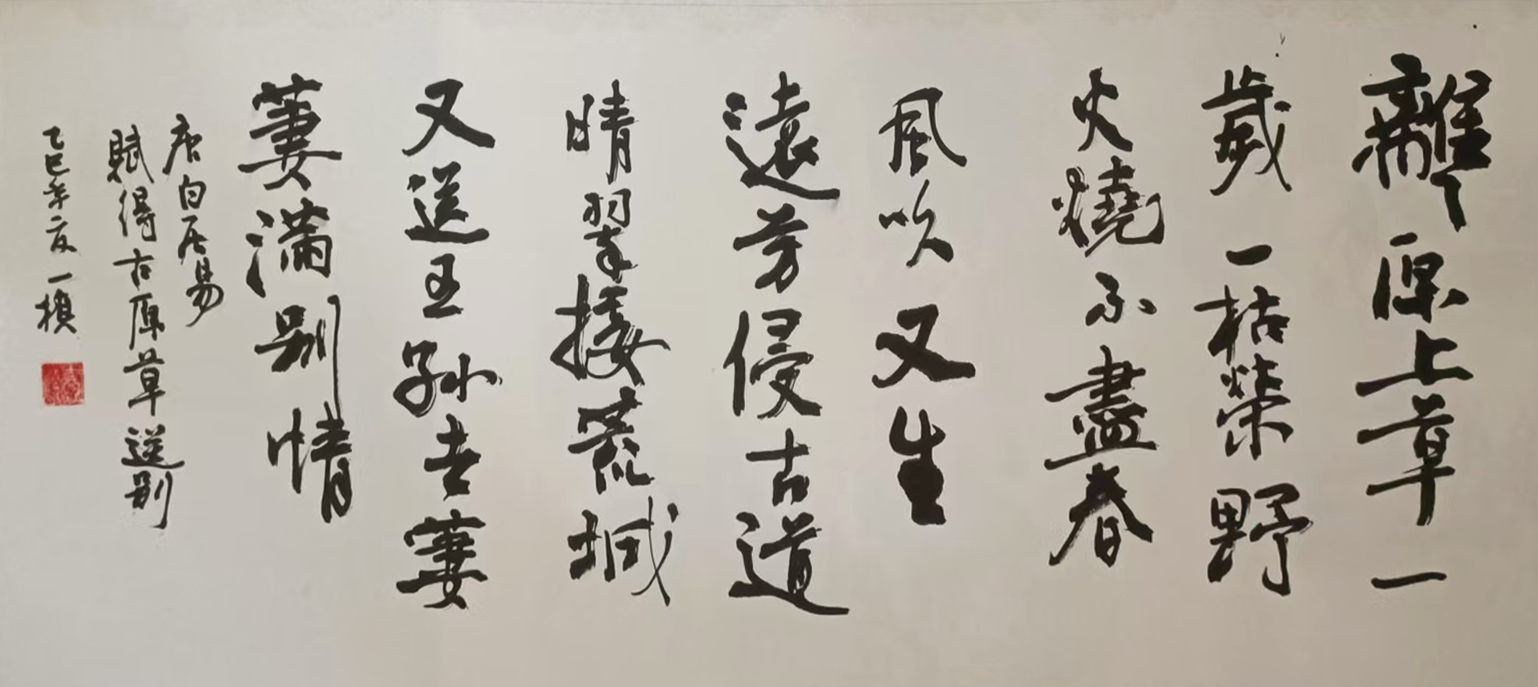 離々原上草一
歲一枯榮野
火燒不盡春
風吹又生
遠芳侵古道
晴翠接荒城
又送王孙去萋
萋滿别情
唐白居易
賦得古原草送别
乙巳年夏一